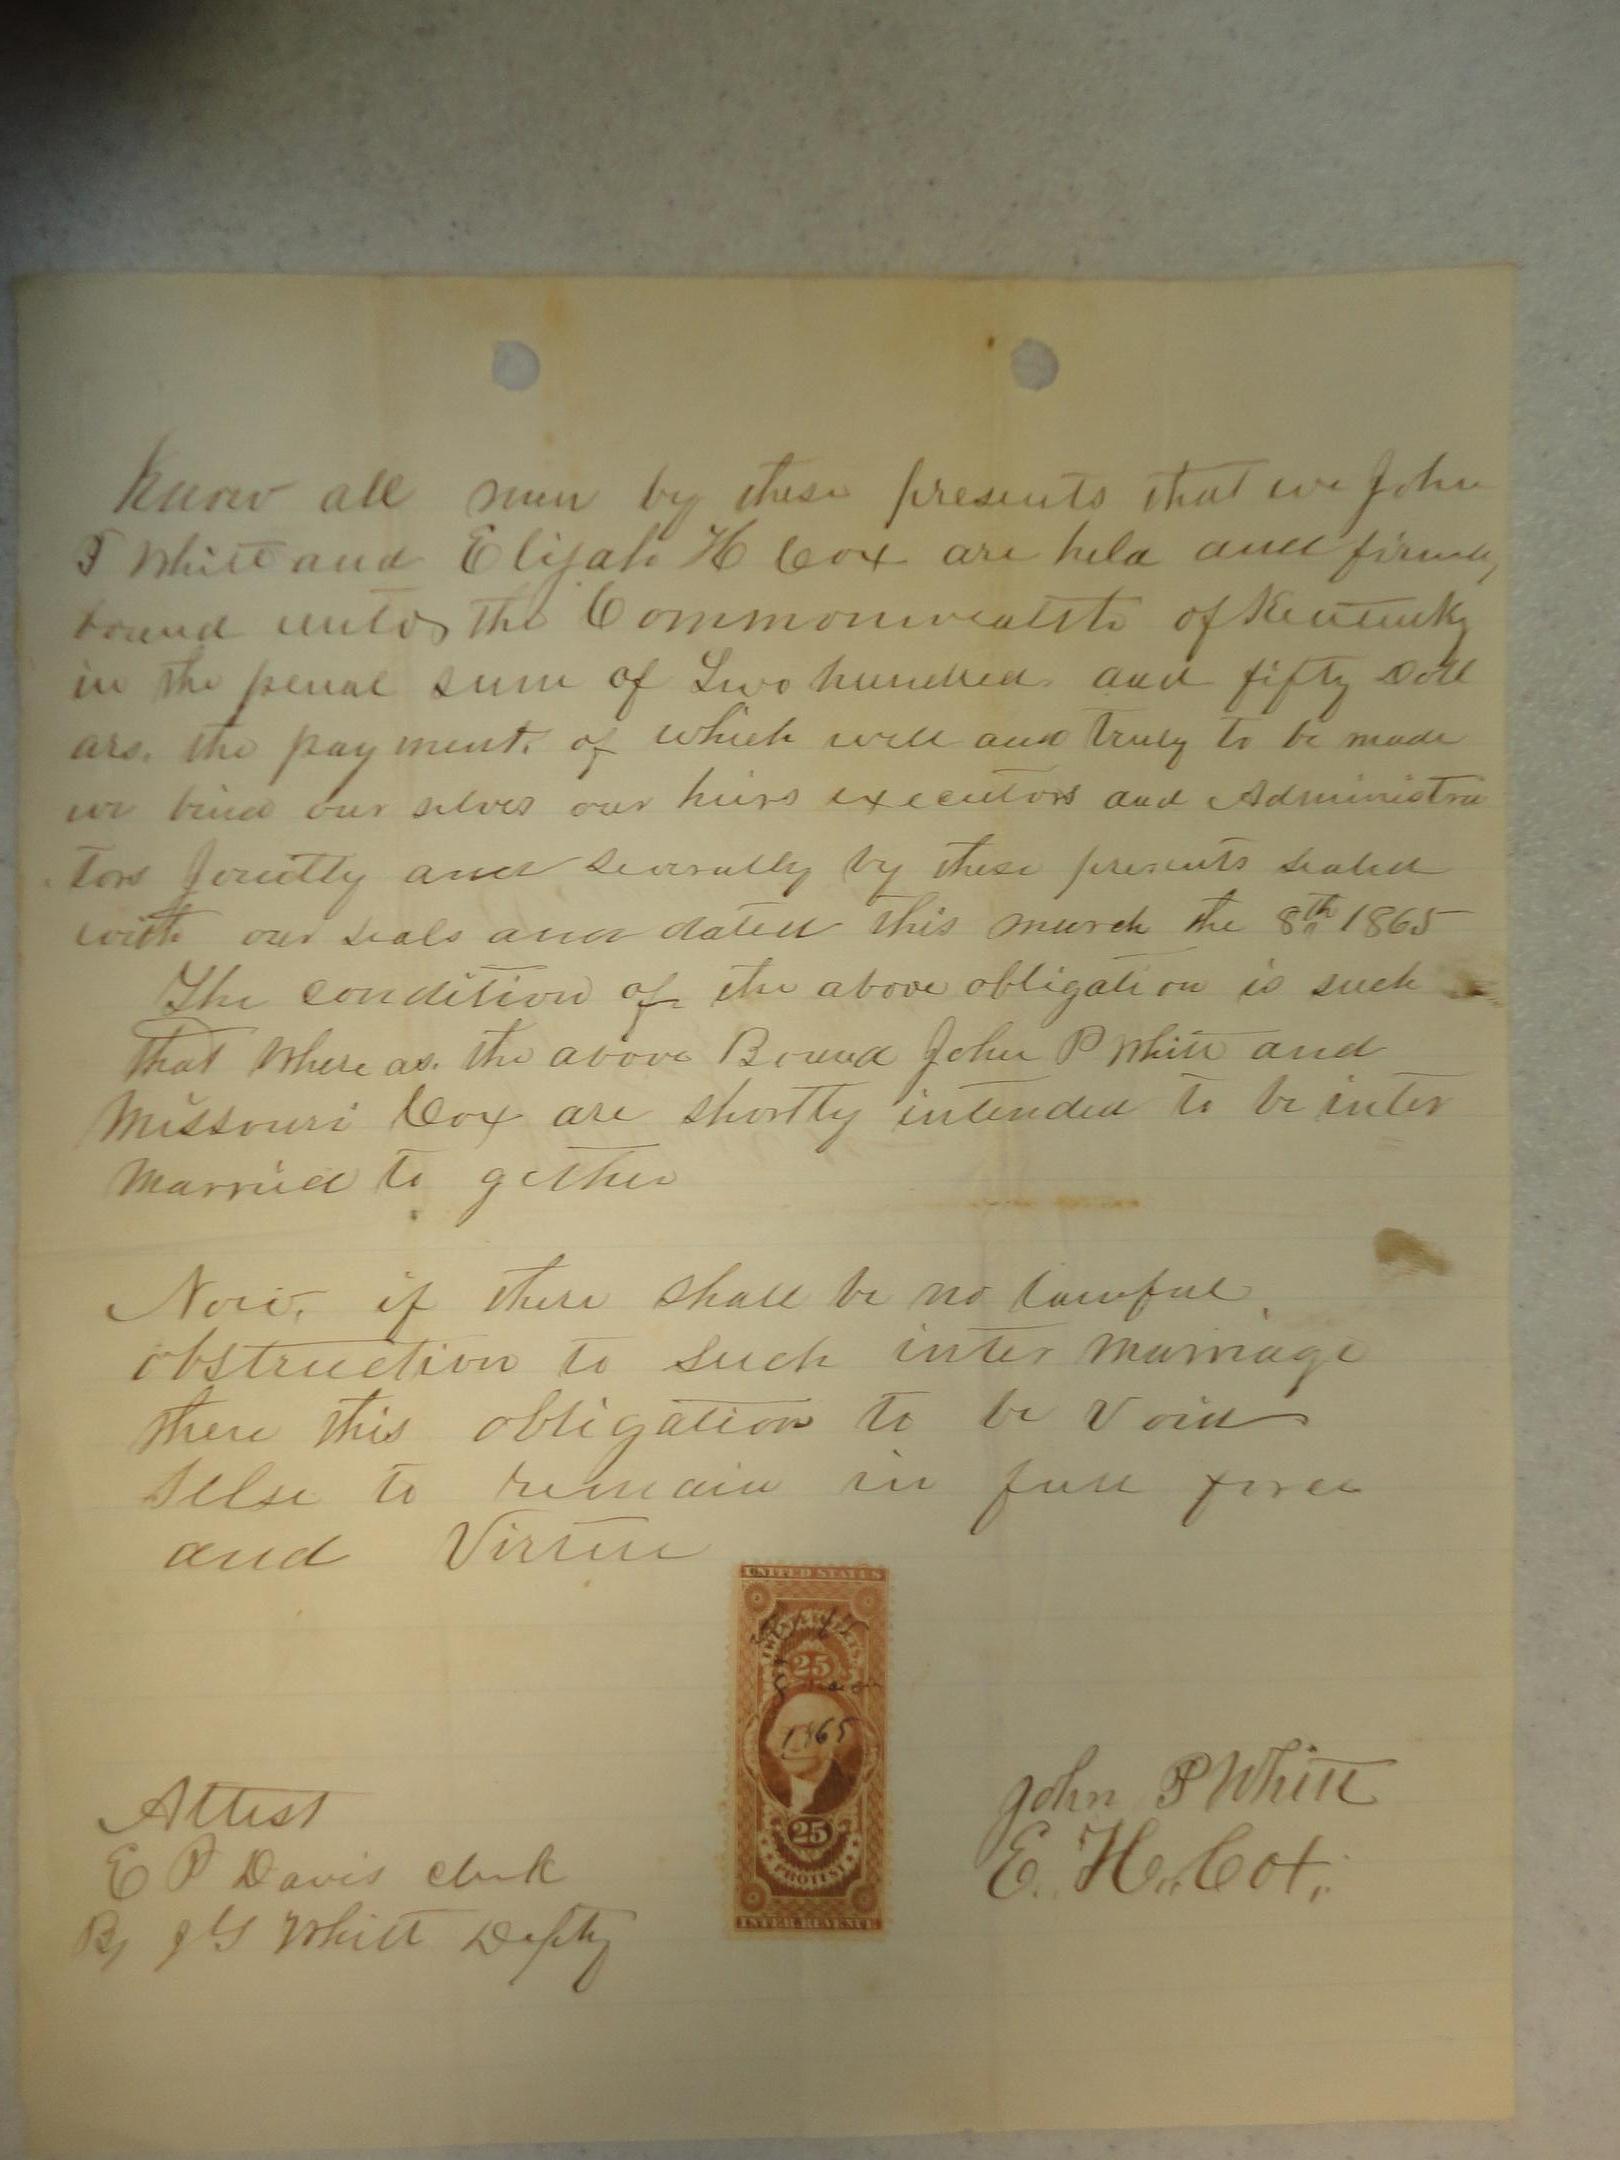 Know all men by these presents that we John
P Whitt and Elijah H Cox are held and firmly
bound unto the Commonwealth of Kentucky
in the penal sum of Two hundred and fifty Doll
ars. the payment of which well and truly to be made
we bind our selves our heirs executors and Administra
tors Jointly and severally by these presents sealed
with our seals and dated this march the 8th 1865
The condition of the above obligation is such
that Where as. the above Bound John P Whitt and
Missouri Cox are shortly intended to be inter
Married to gether
Now, if there shall be no lawful
obstruction to such inter marriage
then this obligation to be Void
Else to remain in full force
and Virtue
UNITED STATES
TWENTY FIVE CENTS
25
1865
25
PROTEST
INTER. REVENUE
John P Whitt
E. H. Cox
Attest
E P Davis Clerk
By Whitt Depty